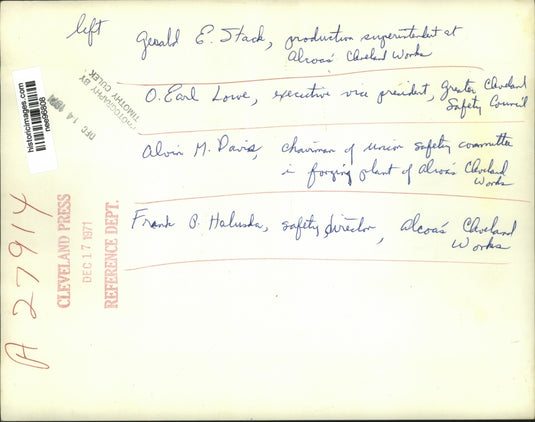 left
Gerald E. Stack, production superintendent at
Alcoa's Cleveland Works
O. Earl Lowe, executive vice president, Greater Cleveland
Safety Council
Alvin M. Davis, chairman of union safety committee
in forging plant of Alcoa's Cleveland
Works
Frank P. Haluska, safety director, Alcoa's Cleveland
Works
historicimages.com
PHOTOGRAPH BY
TIMOTHY CULEK
DEC 14 1971
CLEVELAND PRESS
DEC 17 1971
REFERENCE DEPT.
A 27914